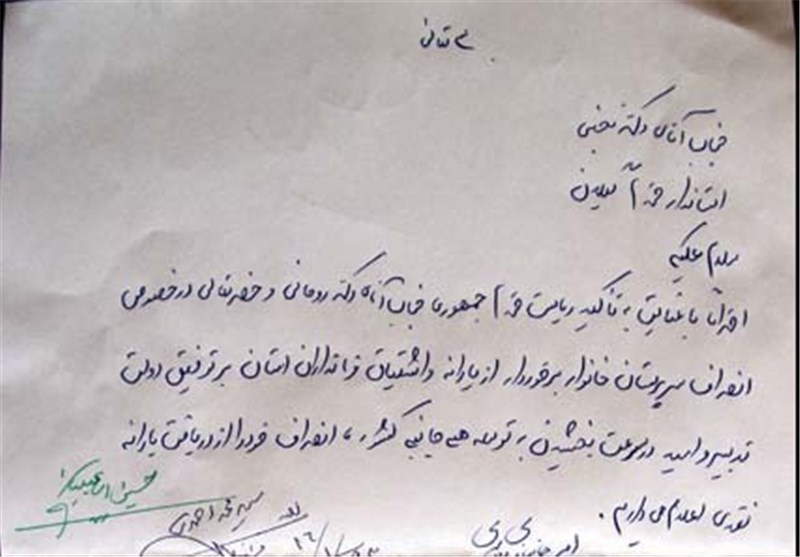 بسمه تعالی
جناب آقای دکتر نجفی
استاندار محترم گیلان
سلام علیکم
احتراماً با عنایت به تأکید ریاست محترم جمهوری جناب آقای دکتر روحانی و حضرتعالی در خصوص
انصراف سرپرستان خانوار برخوردار از یارانه و اشتیاق فرمانداران استان بر توفیق دولت
تدبیر و امید در سرعت بخشیدن به توسعه همه جانبه کشور، انصراف خود را از دریافت یارانه
نقدی اعلام می داریم.
حسین اسماعیل
سید محمد احمدی
امیر